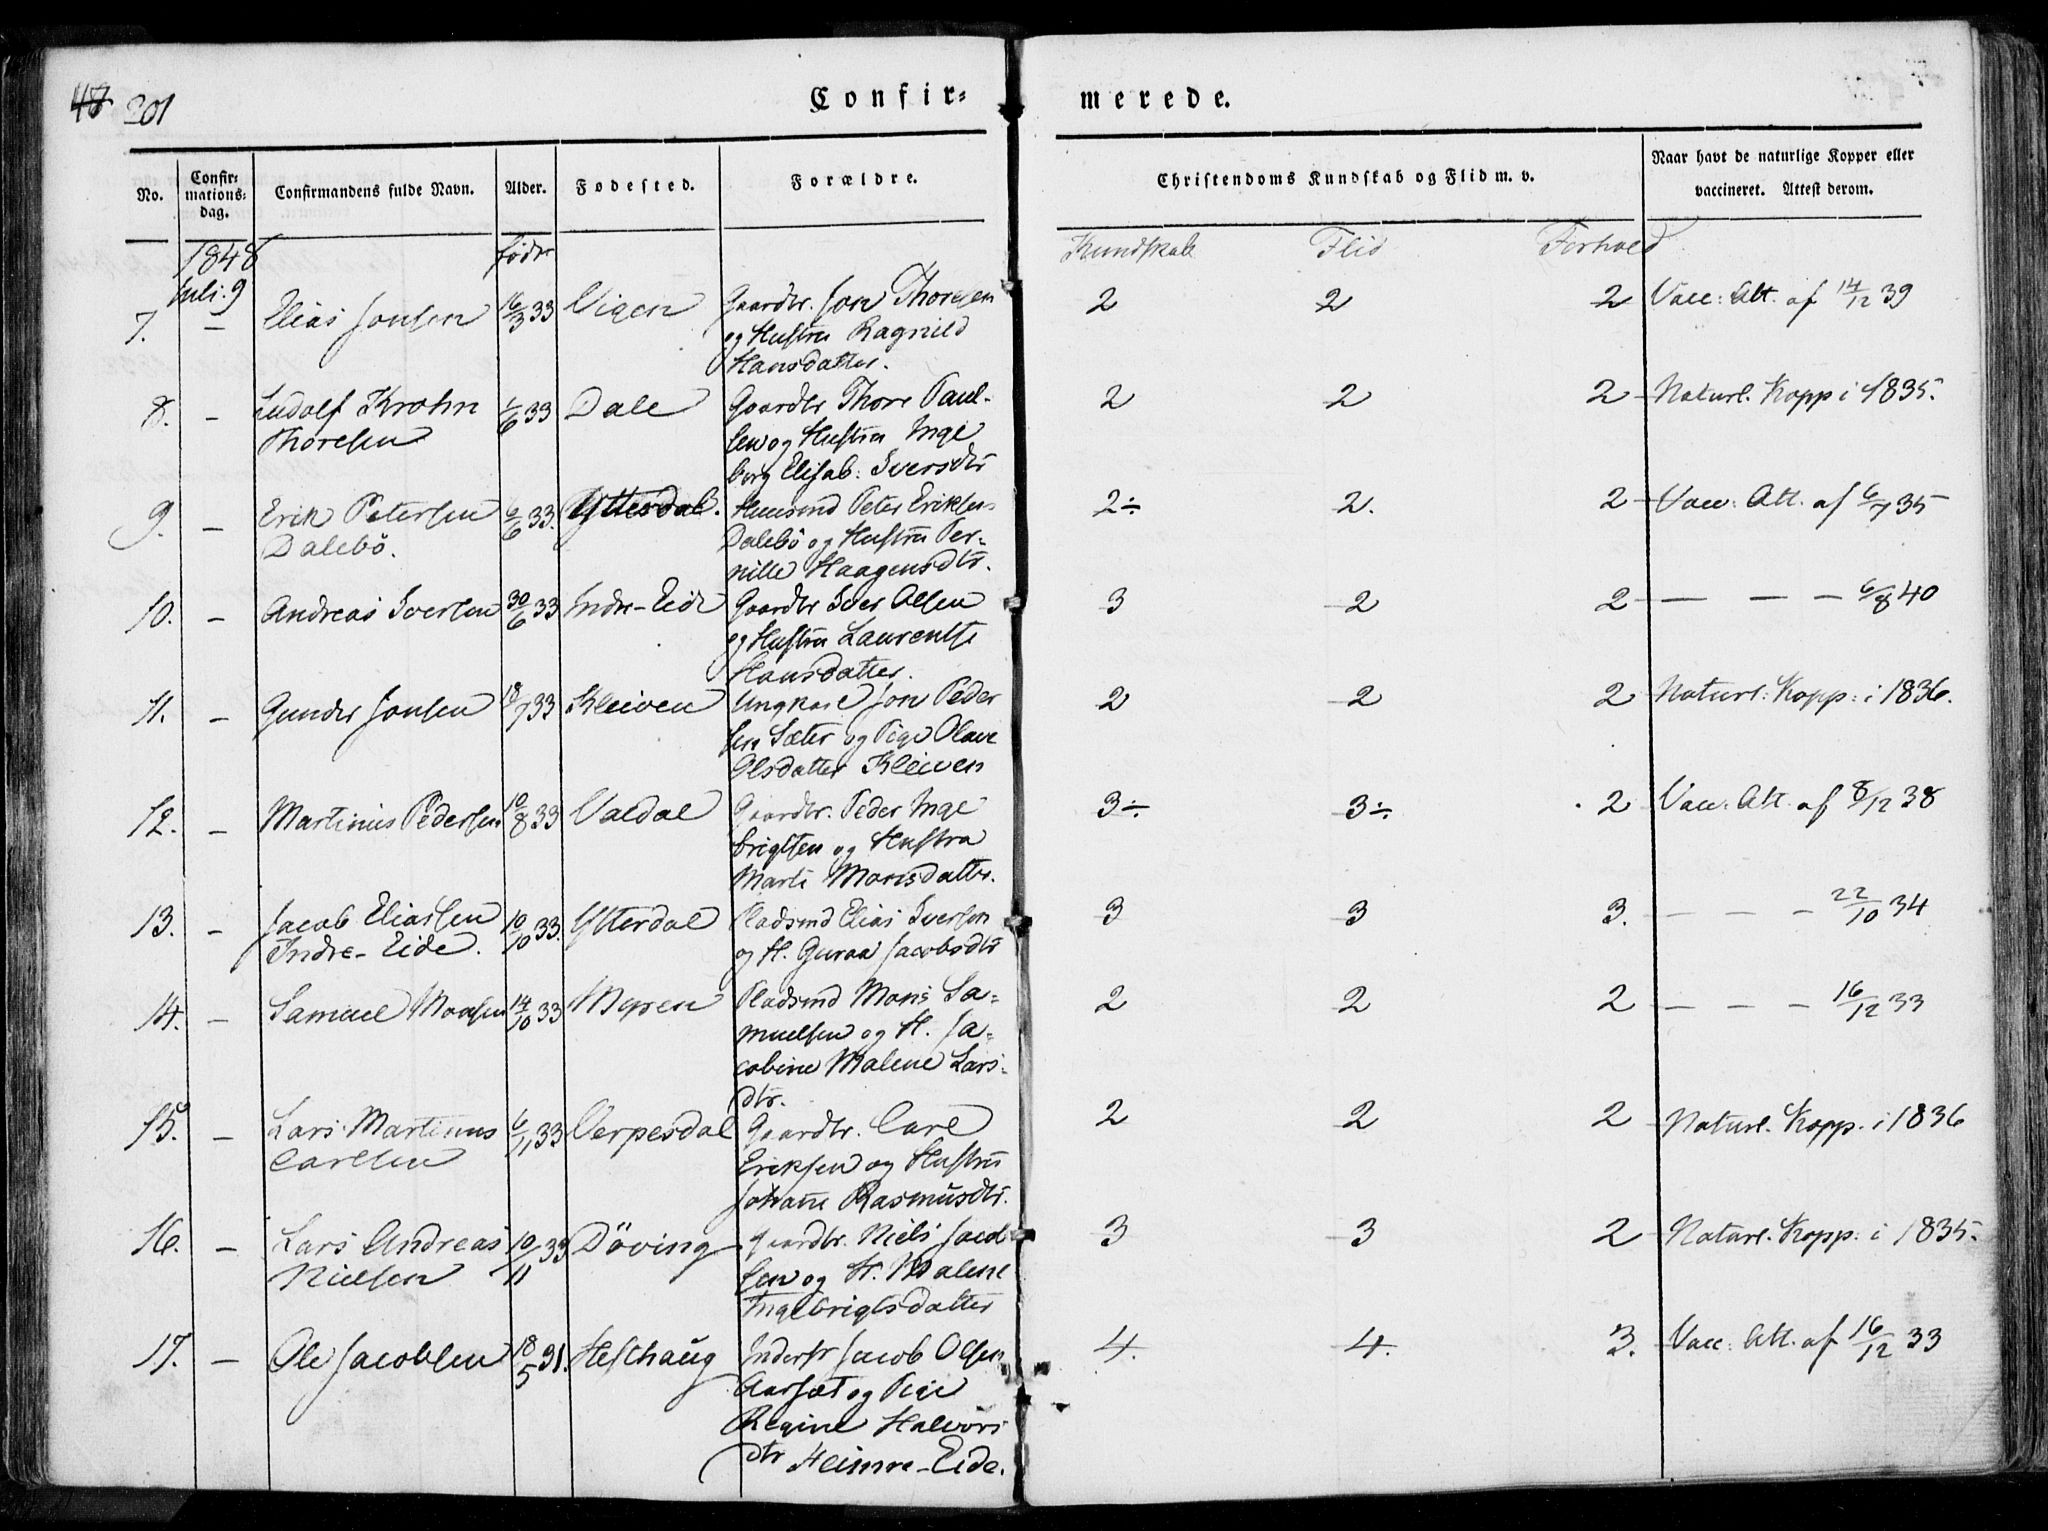 48 201
Confir=
merede.
No.
Confir=
mations=
dag.
Confirmandens fulde Navn.
Alder.
Fødested.
Forældre.
Christendoms Kundskab og Flid m. v.
Naar havt de naturlige Kopper eller
vaccineret. Attest derom.
1848 født
Kundskab Flid Forhold
Juli. 9
7. — Elias Jonsen 16/3 33 Vigen Gaardbr. Jon Thoresen 2 2 2 Vacc: Att. af 14/12 39
og Hustru Ragnild
Hansdatter.
8. — Ludolf Krohn 1/6 33 Dale Gaardbr Thore Paul- 2 2 2 Naturl. Kopp i 1835.
Thoresen sen og Hustru Inge
borg Elisab: Iversdtr
9. — Erik Petersen 6/6 33. Ytterdal. Huusmd Peter Eriksen 2÷ 2. 2 Vacc: Att. af 6/7 35
Dalebö. Dalebö og Hustru Per-
nille Haagensdtr.
10. — Andreas Iversen 30/6 33 Indre-Eide Gaardbr Iver Olsen 3 2 2 — — — 6/8 40
og Hustru Laurentse
Hansdatter.
11. — Gunder Jonsen 18/7 33 Kleiven Ungkarl Jon Peder 2 2 2 Naturl: Kopp: i 1836.
sen Sæter og Pige Olave
Olsdatter Kleiven
12. — Martinus Pedersen 10/8 33 Valdal Gaardbr. Peder Inge 3÷ 3÷ 2 Vacc: Att. af 8/12 38
brigtsen og Hustru
Marte Monsdatter.
13. — Jacob Eliassen 10/10 33. Ytterdal Pladsmd Elias Iversen 3 3 3. — — — 22/10 34
Indre-Eide. og H. Guraa Jacobsdtr
14. — Samuel Monsen 14/10 33 Myren Pladsmd Mons Sa= 2 2 2 — — — 16/12 33
muelsen og H. Ja=
cobine Malene Lars=
dtr.
15. — Lars Martinus 6/11 33 Verpesdal Gaardbr. Carl 2 2 2 Naturl. Kopp. i 1836
Carlsen Eriksen og Hustru
Johanne Rasmusdtr.
16. — Lars Andreas 10/11 33 Döving Gaardbr. Niels Jacob 3 3 2 Naturl. Kopp: i 1835.
Nielsen sen og H. Malene
Ingebrigtsdatter
17. — Ole Jacobsen 18/5 31. Hesthaug Inderst Jacob Olsen 4. 4. 3. Vacc: Att. af 16/12 33
Aarsæt og Pige
Regine Halvors
dtr Heimre-Eide.